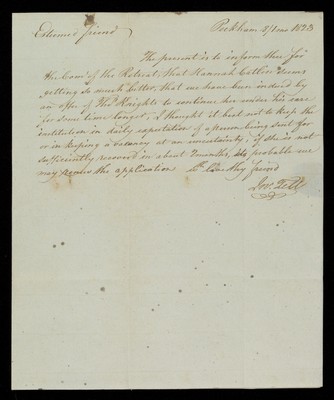 Peckham 5/1mo 1823
Esteemed friend
The present is to inform thee for
the Com.ee of the Retreat, that Hannah Collier seems
getting so much better, that we have been induced by
an offer of Tho.s Knights to continue her under his care
for some time longer; I thought it best not to keep the
institution in daily expectation of a person being sent for
or in keeping a vacancy at an uncertainty, if she is not
sufficiently recovered in about 3 months, its probable we
may renew the application Thy friend